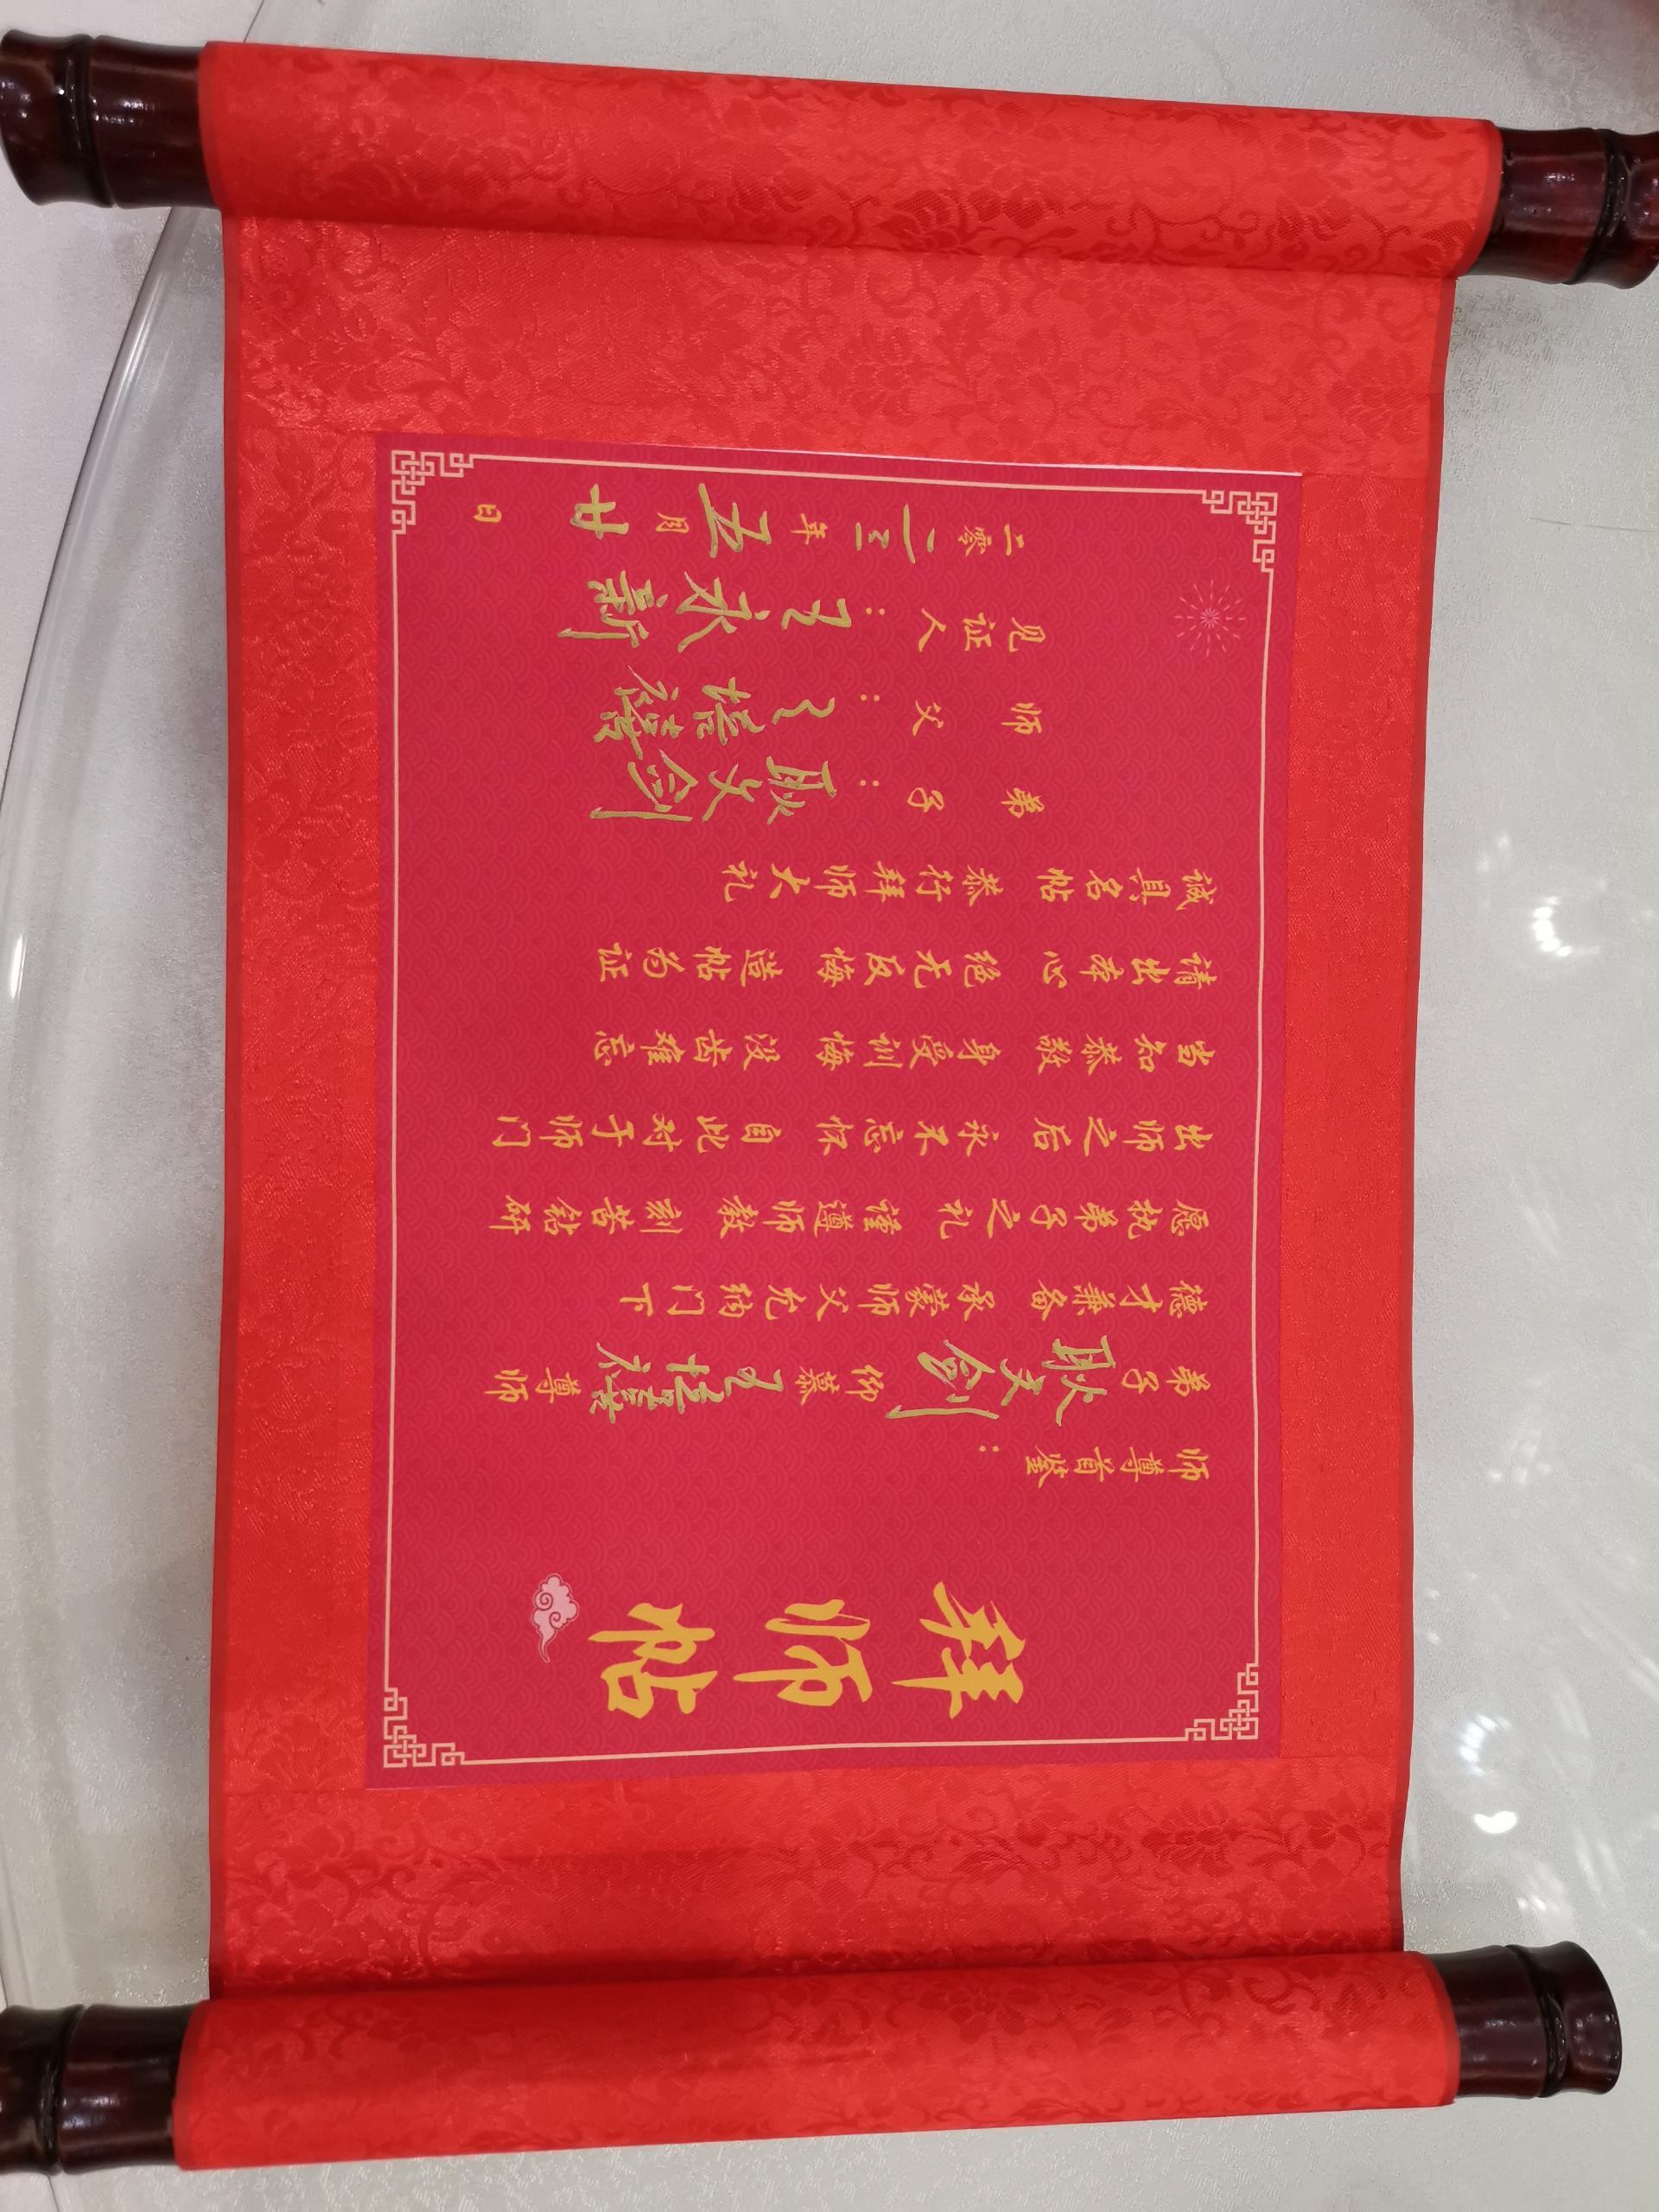 拜师帖
师尊首鉴：
弟子耿文剑仰慕王培禧尊师
德才兼备 承蒙师父允纳门下
愿执弟子之礼 谨遵师教 刻苦钻研
出师之后 永不忘怀 自此对于师门
当知恭敬 身受训悔 没齿难忘
请出本心 绝无反悔 造帖为证
诚具名帖 恭行拜师大礼
弟子：耿文剑
师父：王培禧
见证人：王永新
二零二三年五月廿日